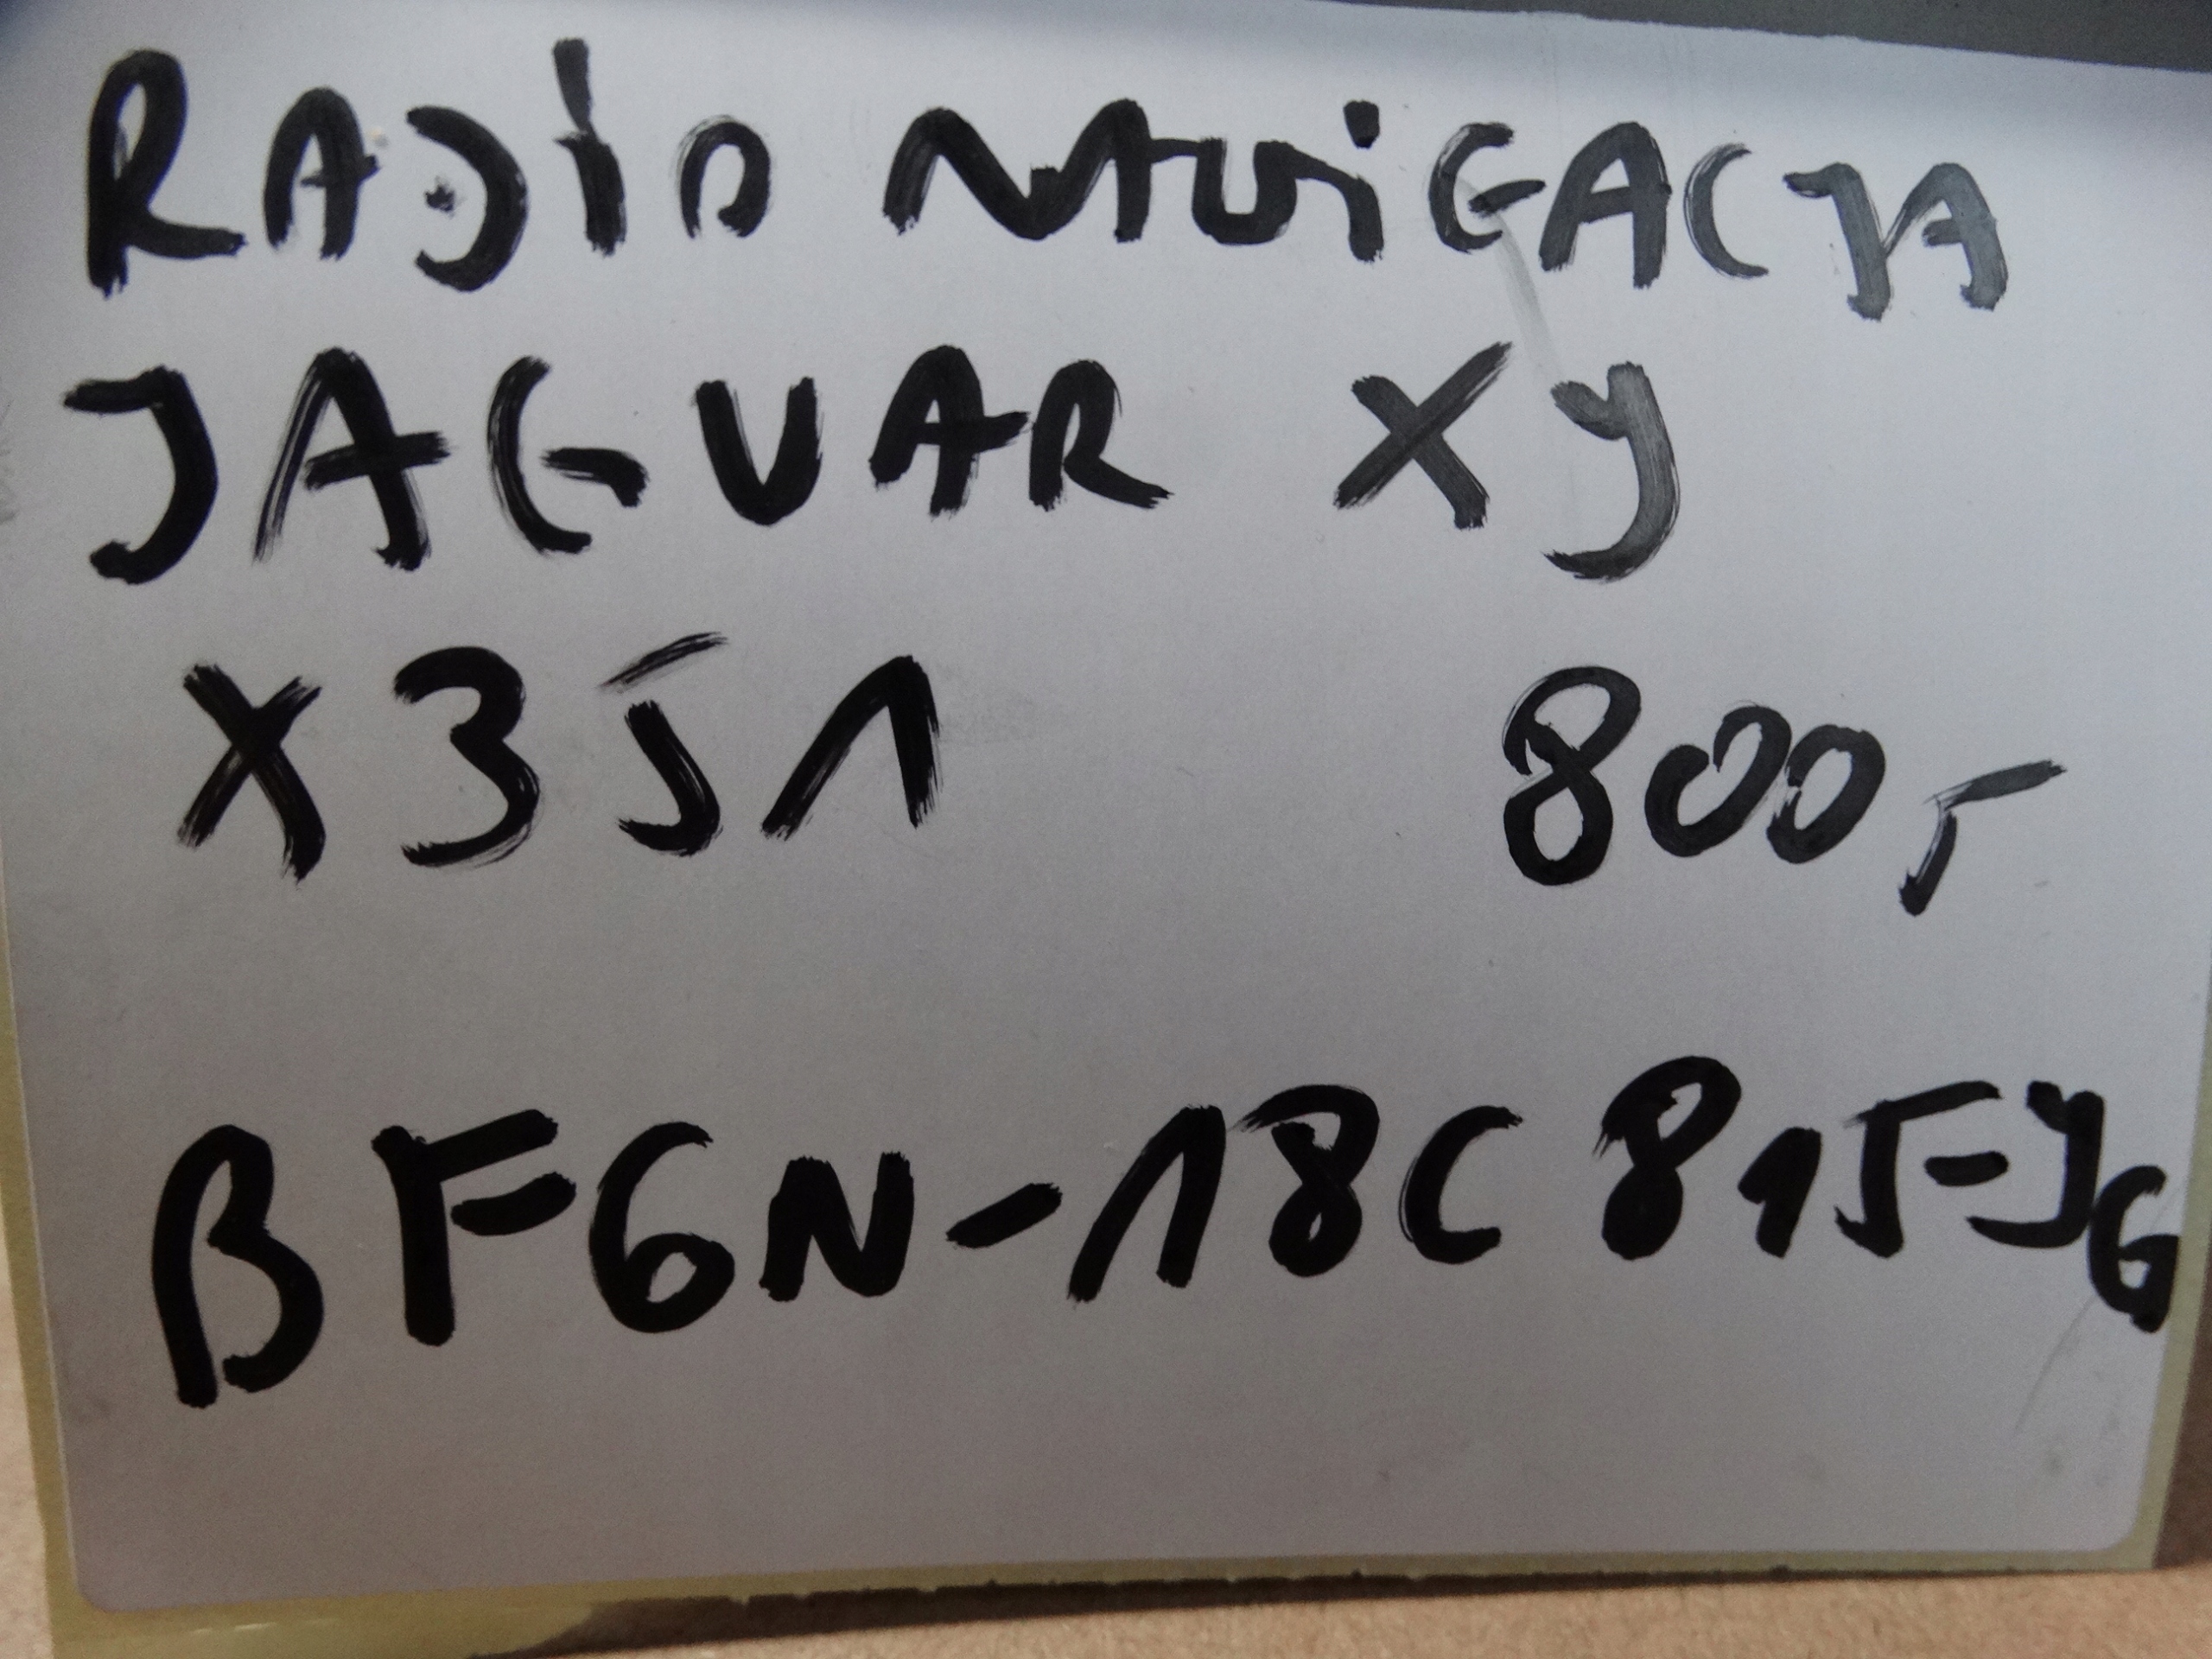 RADIO NAVIGACJA
JAGUAR XJ
X351 800,-
BF6N-18C815-JG